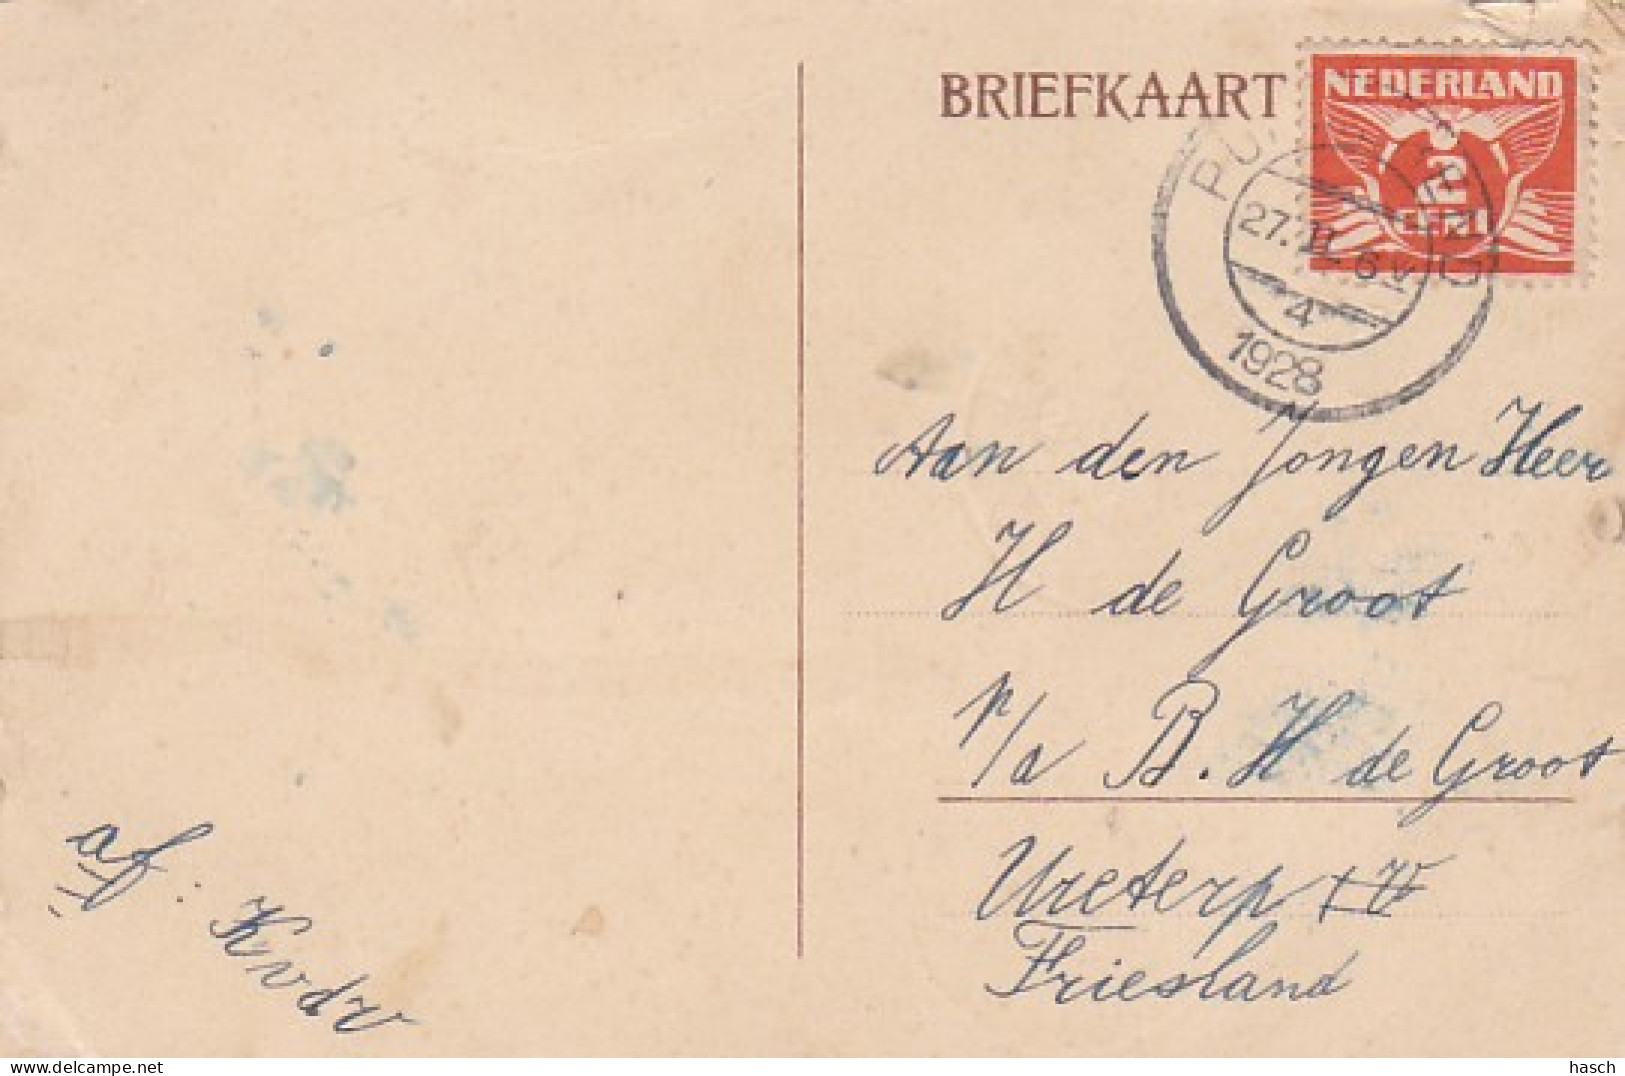 BRIEFKAART
NEDERLAND
2
CENT
27.II. 6 V
4
1928
Aan den Jongen Heer
H de Groot
p/a B. H de Groot
Ureterp
Friesland
af:
hasch
delcampe.net